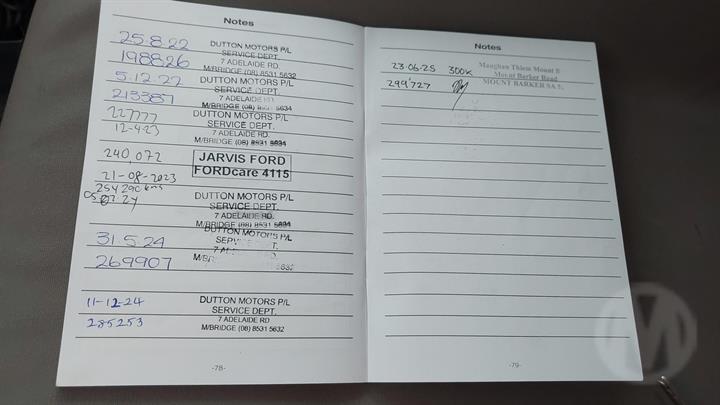 Notes
25.8.22 DUTTON MOTORS P/L
SERVICE DEPT.
198826 7 ADELAIDE RD.
M/BRIDGE (08) 8531 5632
5.12.22 DUTTON MOTORS P/L
SERVICE DEPT.
213387 7 ADELAIDE RD.
M/BRIDGE (08) 8531 5634
227777 DUTTON MOTORS P/L
SERVICE DEPT.
12-4-23 7 ADELAIDE RD.
M/BRIDGE (08) 8531 5634
240,072 JARVIS FORD
FORDcare 4115
21-08-2023
254290 kms DUTTON MOTORS P/L
SERVICE DEPT.
7 ADELAIDE RD.
M/BRIDGE (08) 8531 5634
31.5.24 DUTTON MOTORS P/L
269907
11-12-24 DUTTON MOTORS P/L
SERVICE DEPT.
285253 7 ADELAIDE RD
M/BRIDGE (08) 8531 5632
-78-
Notes
23.06.25 300K Maughan Thiem Mount B
Mount Barker Road
299'727 MOUNT BARKER SA 5
-79-
M